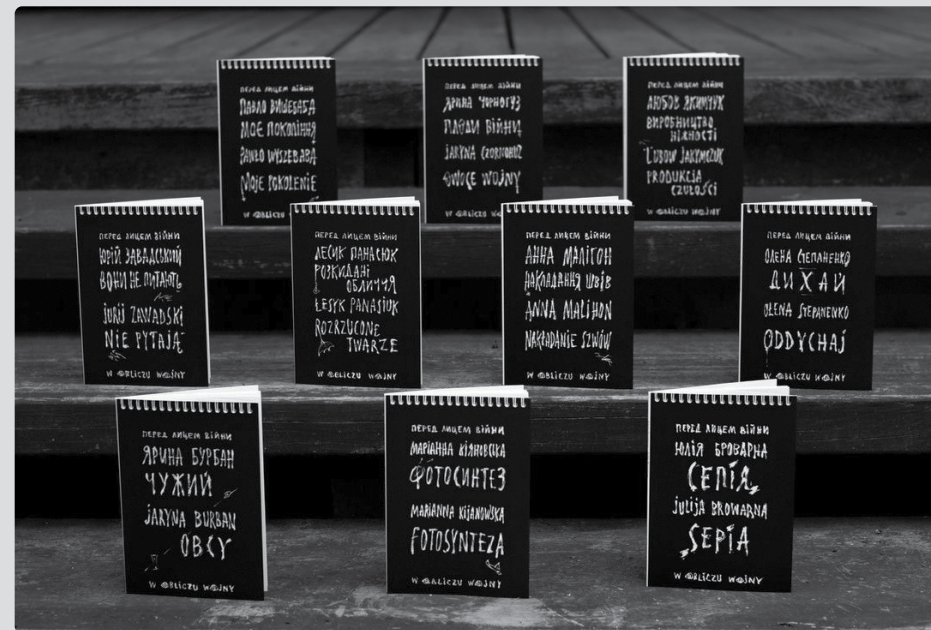 ПЕРЕД ЛИЦЕМ ВІЙНИ
ПАВЛО ВИШЕБАБА
МОЄ ПОКОЛІННЯ
PAWŁO WYSZEBABA
MOJE POKOLENIE
W OBLICZU
ПЕРЕД ЛИЦЕМ ВІЙНИ
ЯРИНА ЧОРНОГУЗ
ПЛОДИ ВІЙНИ
JARYNA CZORNOHUZ
OWOCE WOJNY
W OBLICZU WOJNY
ПЕРЕД ЛИЦЕМ ВІЙНИ
ЛЮБОВ ЯКИМЧУК
ВИРОБНИЦТВО
НІЖНОСТІ
ŁUBOW JAKYMCZUK
PRODUKCJA
CZUŁOŚCI
W OBLICZU WOJNY
ПЕРЕД ЛИЦЕМ ВІЙНИ
ЮРІЙ ЗАВАДСЬКИЙ
ВОНИ НЕ ПИТАЮТЬ
JURIJ ZAWADSKI
NIE PYTAJĄ
W OBLICZU WOJNY
ПЕРЕД ЛИЦЕМ ВІЙНИ
ЛЕСИК ПАНАСЮК
РОЗКИДАНІ
ОБЛИЧЧЯ
ŁESYK PANASIUK
ROZRZUCONE
TWARZE
W OBLICZU WOJNY
ПЕРЕД ЛИЦЕМ ВІЙНИ
АННА МАЛІГОН
НАКЛАДАННЯ ШВІВ
ANNA MALIHON
NAKŁADANIE SZWÓW
W OBLICZU WOJNY
ПЕРЕД ЛИЦЕМ ВІЙНИ
ОЛЕНА СТЕПАНЕНКО
ДИХАЙ
OLENA STEPANENKO
ODDYCHAJ
W OBLICZU WOJNY
ПЕРЕД ЛИЦЕМ ВІЙНИ
ЯРИНА БУРБАН
ЧУЖИЙ
JARYNA BURBAN
OBCY
W OBLICZU WOJNY
ПЕРЕД ЛИЦЕМ ВІЙНИ
МАРІАННА КІЯНОВСЬКА
ФОТОСИНТЕЗ
MARIANNA KIJANOWSKA
FOTOSYNTEZA
W OBLICZU WOJNY
ПЕРЕД ЛИЦЕМ ВІЙНИ
ЮЛІЯ БРОВАРНА
СЕПІЯ
JULIJA BROWARNA
SEPIA
W OBLICZU WOJNY